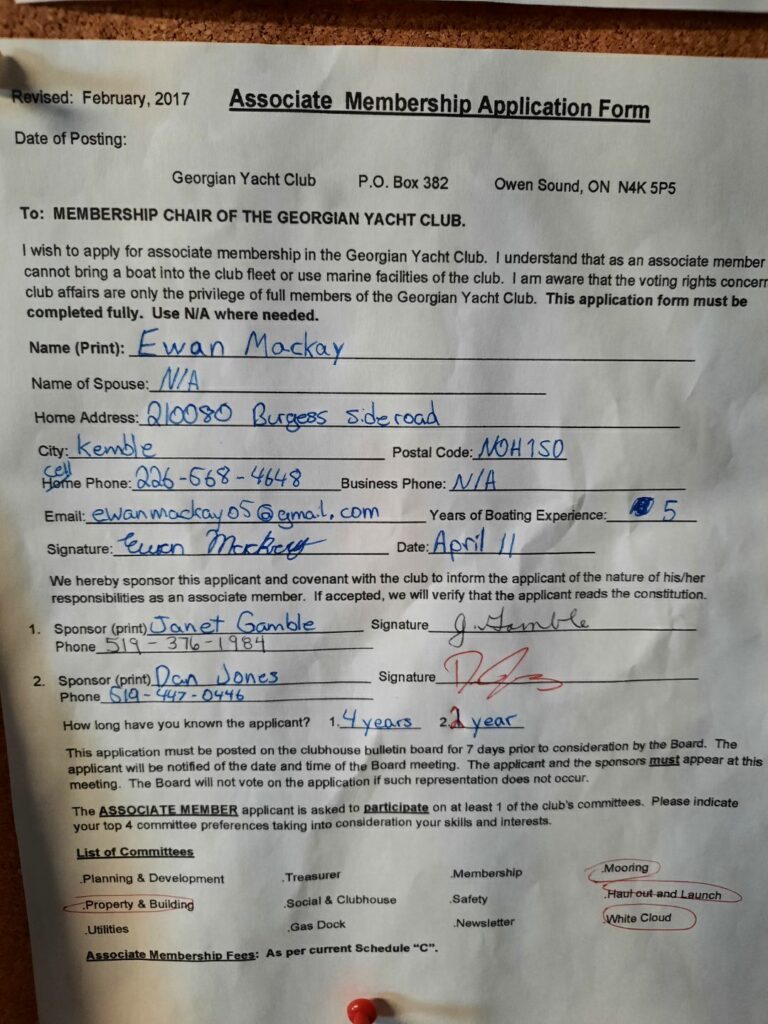 Revised: February, 2017 Associate Membership Application Form
Date of Posting:
Georgian Yacht Club P.O. Box 382 Owen Sound, ON N4K 5P5
To: MEMBERSHIP CHAIR OF THE GEORGIAN YACHT CLUB.
I wish to apply for associate membership in the Georgian Yacht Club. I understand that as an associate member
cannot bring a boat into the club fleet or use marine facilities of the club. I am aware that the voting rights concern
club affairs are only the privilege of full members of the Georgian Yacht Club. This application form must be
completed fully. Use N/A where needed.
Name (Print): Ewan Mackay
Name of Spouse: N/A
Home Address: 210080 Burgess Sideroad
City: Kemble Postal Code: N0H 1S0
cell
Home Phone: 226-668-4648 Business Phone: N/A
Email: ewanmackay05@gmail.com Years of Boating Experience: 5
Signature: Ewan Mackay Date: April 11
We hereby sponsor this applicant and covenant with the club to inform the applicant of the nature of his/her
responsibilities as an associate member. If accepted, we will verify that the applicant reads the constitution.
1. Sponsor (print) Janet Gamble Signature J. Gamble
Phone 519-376-1984
2. Sponsor (print) Dan Jones Signature
Phone 519-447-0446
How long have you known the applicant? 1. 4 years 2. year
This application must be posted on the clubhouse bulletin board for 7 days prior to consideration by the Board. The
applicant will be notified of the date and time of the Board meeting. The applicant and the sponsors must appear at this
meeting. The Board will not vote on the application if such representation does not occur.
The ASSOCIATE MEMBER applicant is asked to participate on at least 1 of the club's committees. Please indicate
your top 4 committee preferences taking into consideration your skills and interests.
List of Committees
.Planning & Development .Treasurer .Membership .Mooring
.Property & Building .Social & Clubhouse .Safety .Haul out and Launch
.Utilities .Gas Dock .Newsletter .White Cloud
Associate Membership Fees: As per current Schedule "C".